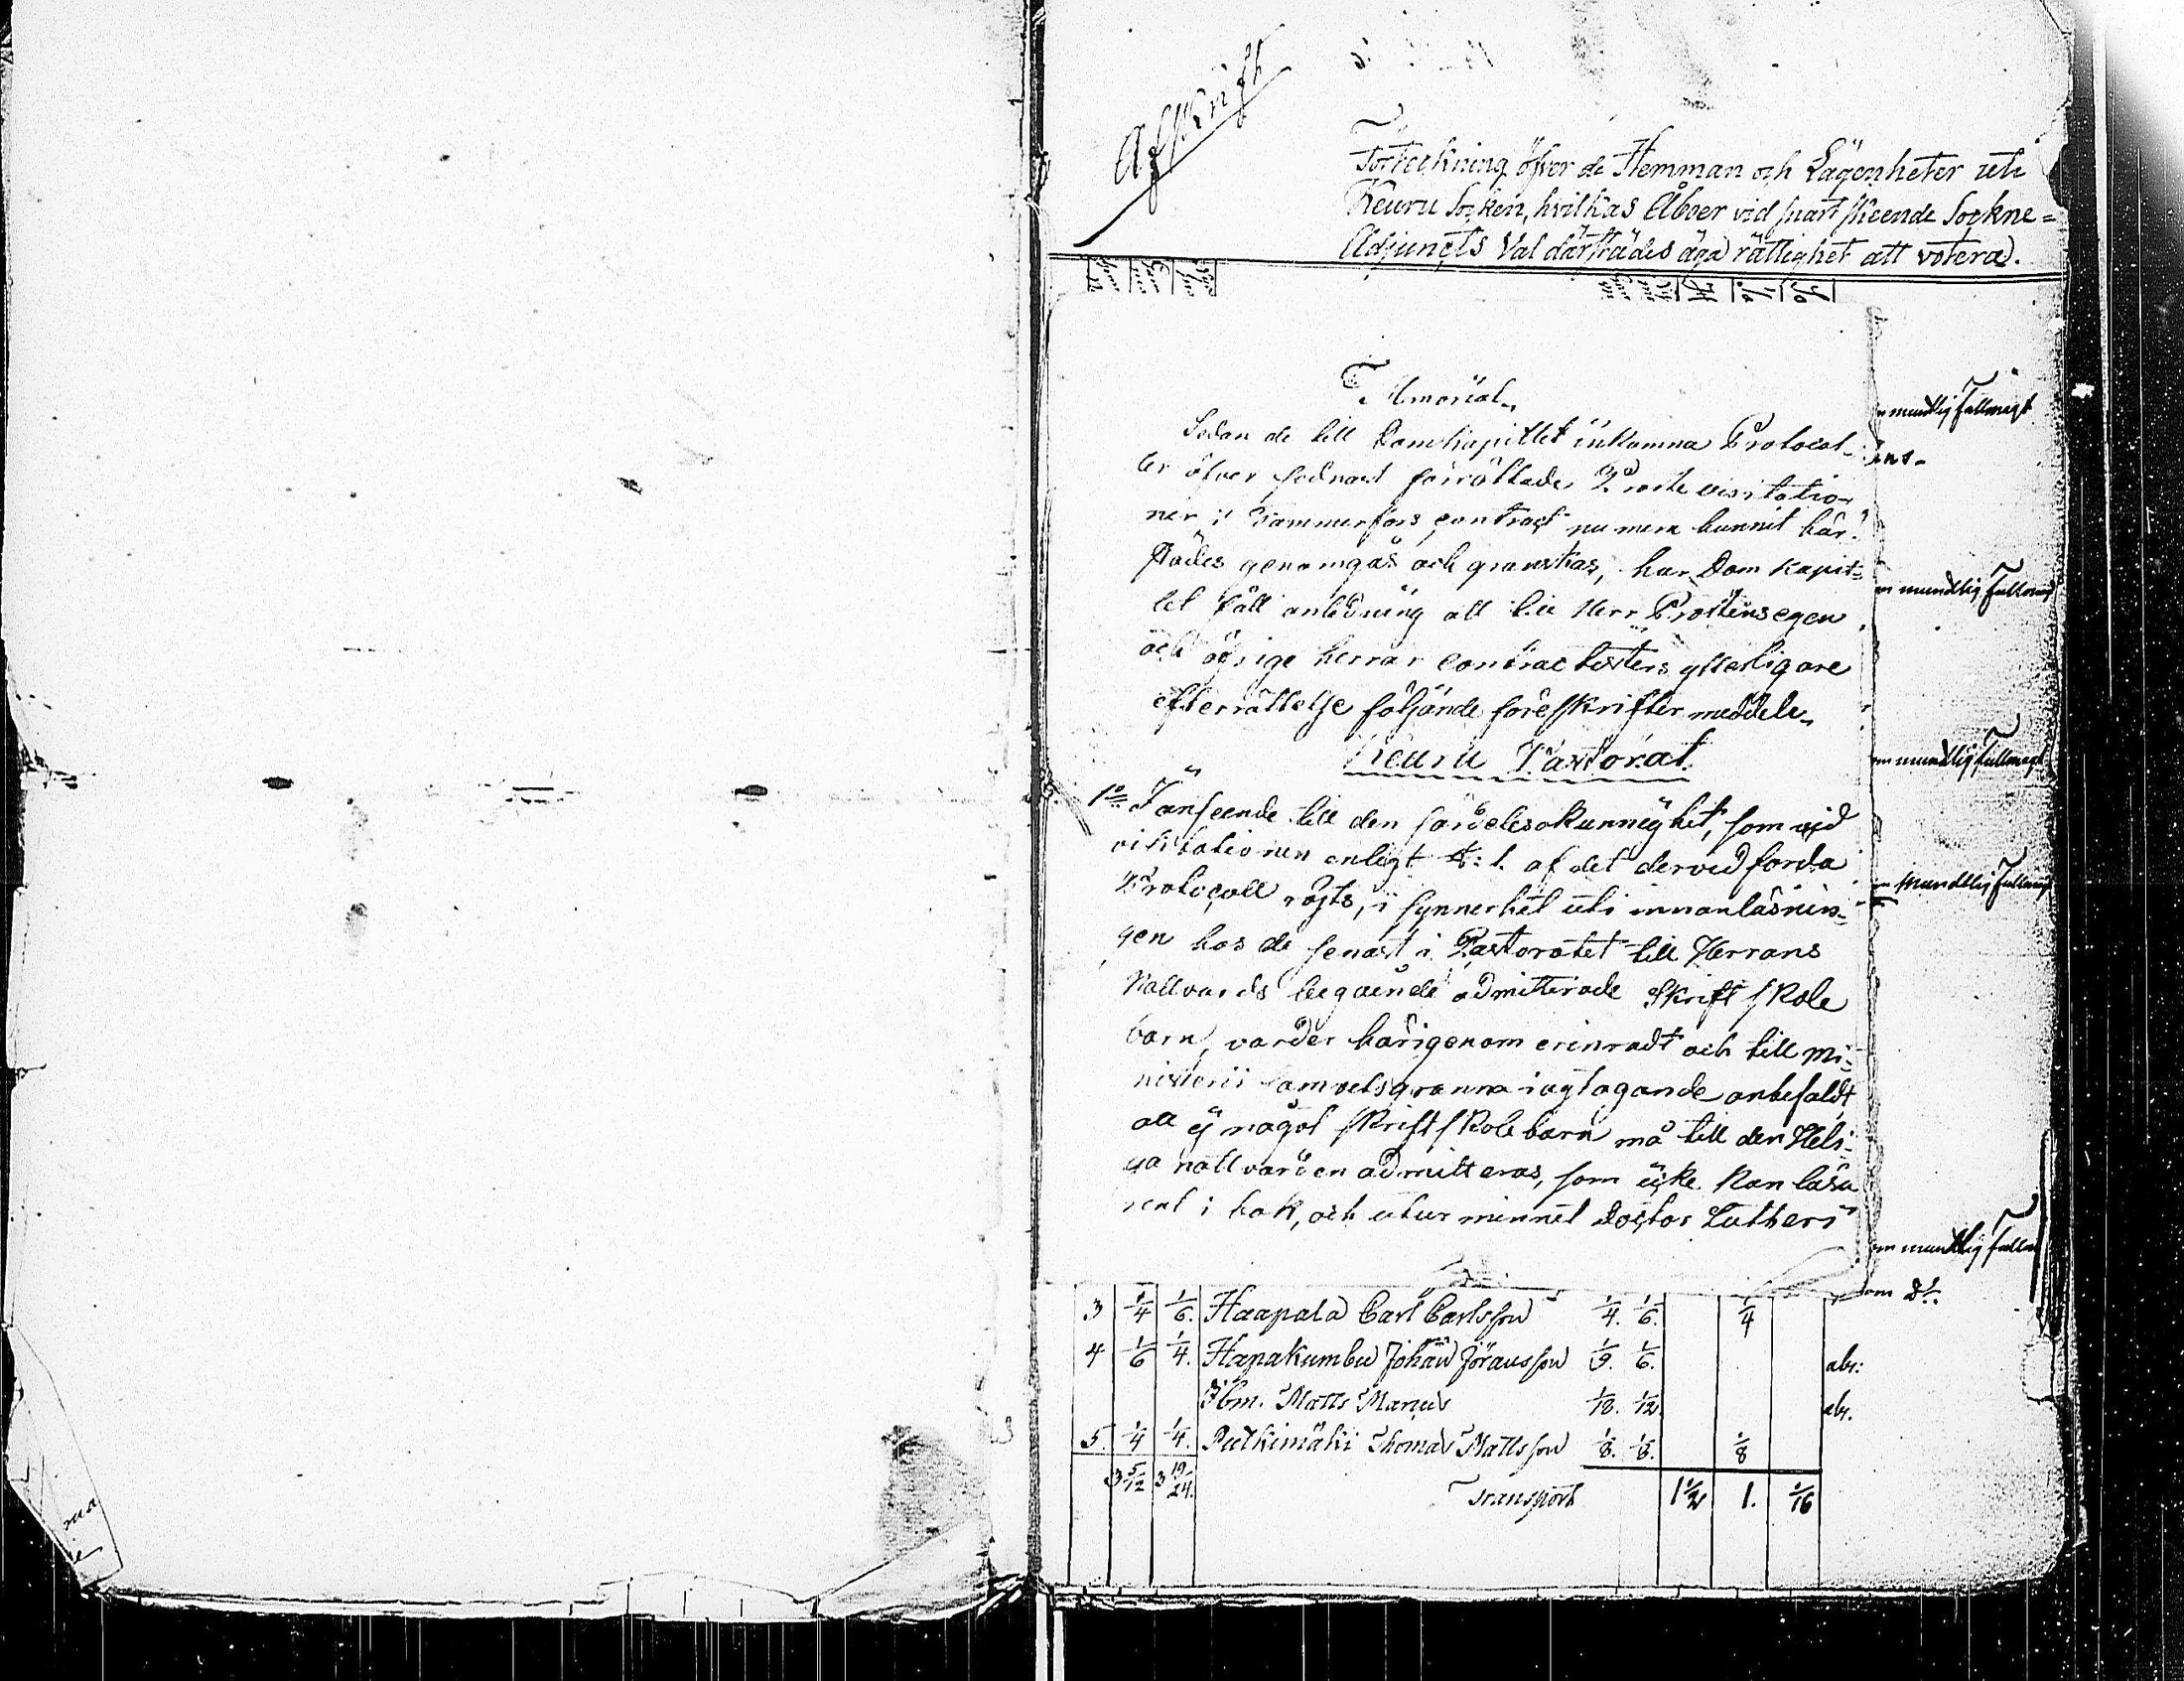 Afskrift
Forteckning öfver de Hemman och Lägenheter uti
Keuru Socken, hvilkas Åboer vid snart skeende Sockne=
Adjuncts Val därstädes äga rättighet att votera.
Memorial,
Sedan de till Domkapitlet inkomna Protocol-
ler öfver sednast förrättade Proste visitatio-
ner i Tammerfors contract nu mera hunnit här-
städes genomgås och granskas, har Dom Kapit-
let fått anledning att till Herr Prostens egen
och öfrige herrar contractisters ytterligare
efterrättelse följandeföreskrifter meddela,
Keuru Pastorat.
1o I anseende till den särdeles okunnighet, som vid
visitationen enligt §: 1. af det dervid förda
Protocoll röjts, i synnerhet uti innanläsnin-
gen hos de senast i Pastoratet till Herrans
Nattvards begående admitterade Skrift skole
barn, varder härigenom erinradt och till Mi-
nisterii samvetsgranna iagtagande anbefaldt
att ej något skriftskolebarn må till den Heli-
ga nattvarden admitteras, som icke kan läsa
rent i bok, och utur minnet Doctor Luthers
mundlig fullmagt
mundlig fullmag
mundlig fullmagt
mundlig fullmag
mundlig fullm
om do.
3 1/4 1/6. Haapala Carl Carlsson 1/4. 1/6. 1/4
4 1/6 1/4. Hanakumbu Johan Göransson 1/9. 1/6. abs:
Ibm. Matts Manus 1/18. 1/12. abs.
5. 1/4 1/4. Pulkimäki Thomas Mattsson 1/8. 1/8. 1/8
3 5/12 3 19/24. Transport 1 1/2 1. 1/16